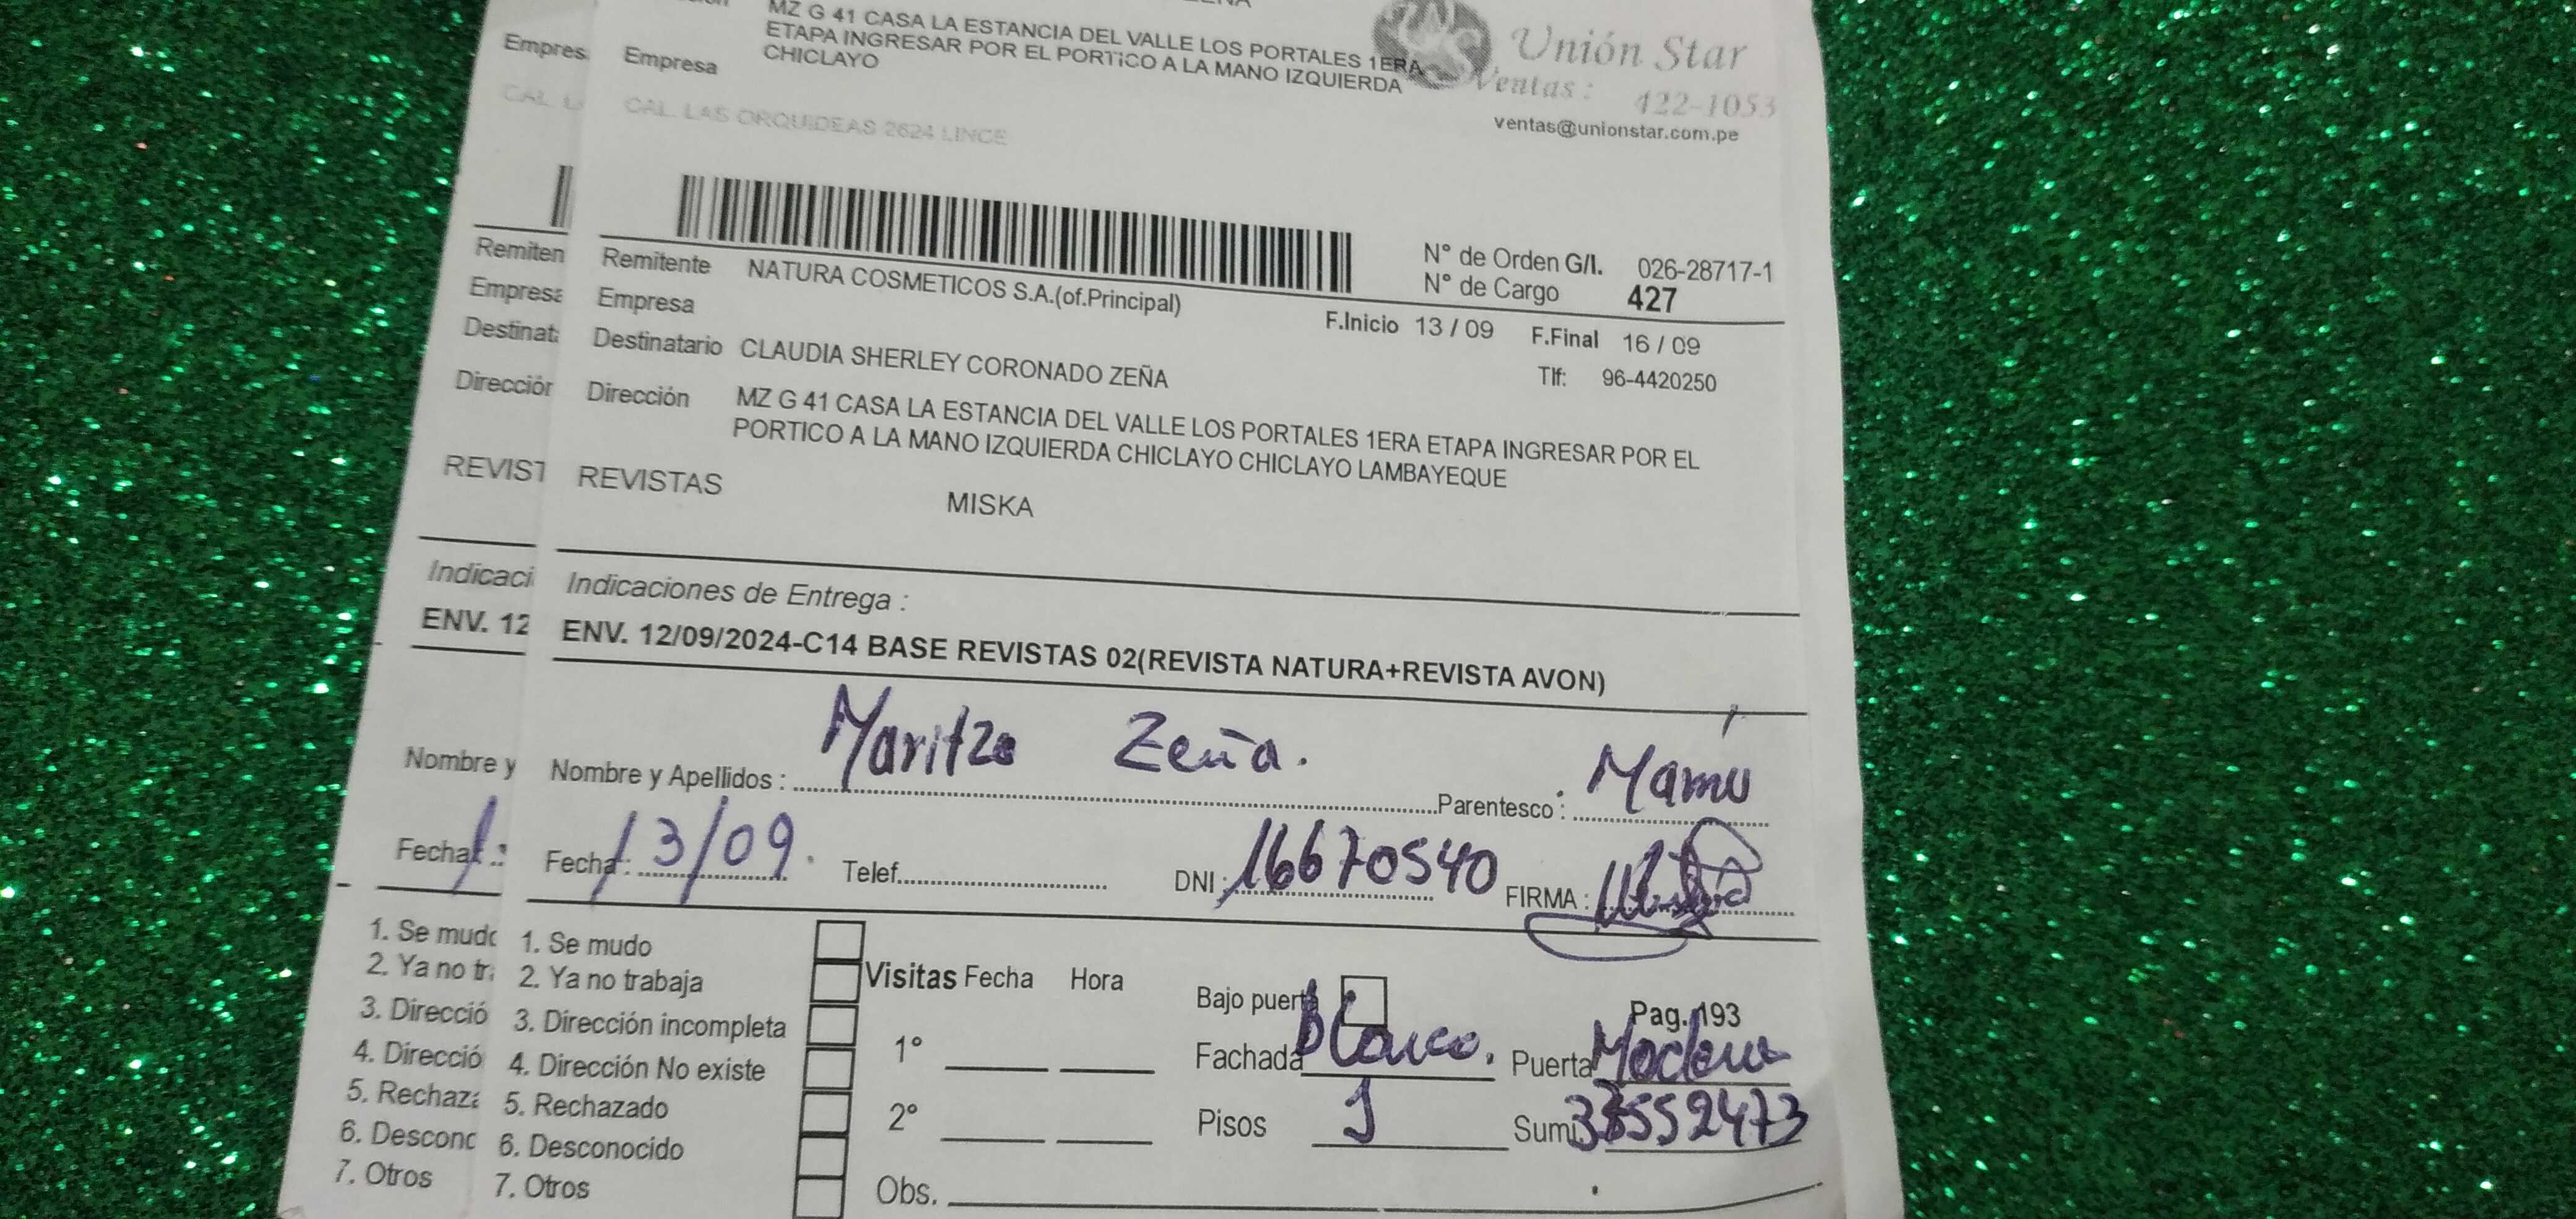 MZ G 41 CASA LA ESTANCIA DEL VALLE LOS PORTALES 1ERA
ETAPA INGRESAR POR EL PORTICO A LA MANO IZQUIERDA
CHICLAYO
Empres Empresa
CAL. LAS ORQUIDEAS 2624 LINCE
Unión Star
Ventas: 422-1053
ventas@unionstar.com.pe
N° de Orden G/I. 026-28717-1
N° de Cargo 427
Remiten Remitente NATURA COSMETICOS S.A.(of.Principal)
Empresa Empresa
F.Inicio 13 / 09 F.Final 16 / 09
Destinat Destinatario CLAUDIA SHERLEY CORONADO ZEÑA
Tlf: 96-4420250
Dirección Dirección MZ G 41 CASA LA ESTANCIA DEL VALLE LOS PORTALES 1ERA ETAPA INGRESAR POR EL
PORTICO A LA MANO IZQUIERDA CHICLAYO CHICLAYO LAMBAYEQUE
REVIST REVISTAS
MISKA
Indicaci Indicaciones de Entrega :
ENV. 12 ENV. 12/09/2024-C14 BASE REVISTAS 02(REVISTA NATURA+REVISTA AVON)
Nombre y Nombre y Apellidos : Maritza Zeña. Parentesco : Mamá
Fecha: Fecha: 13/09. Telef. DNI : 16670540 FIRMA :
1. Se mudo 1. Se mudo
2. Ya no tr 2. Ya no trabaja
3. Direcció 3. Dirección incompleta
4. Direcció 4. Dirección No existe
5. Rechaza 5. Rechazado
6. Desconc 6. Desconocido
7. Otros 7. Otros
Visitas Fecha Hora
1°
2°
Obs.
Bajo puerta Pag. 193
Fachada Blanco. Puerta
Pisos 1 Sumi